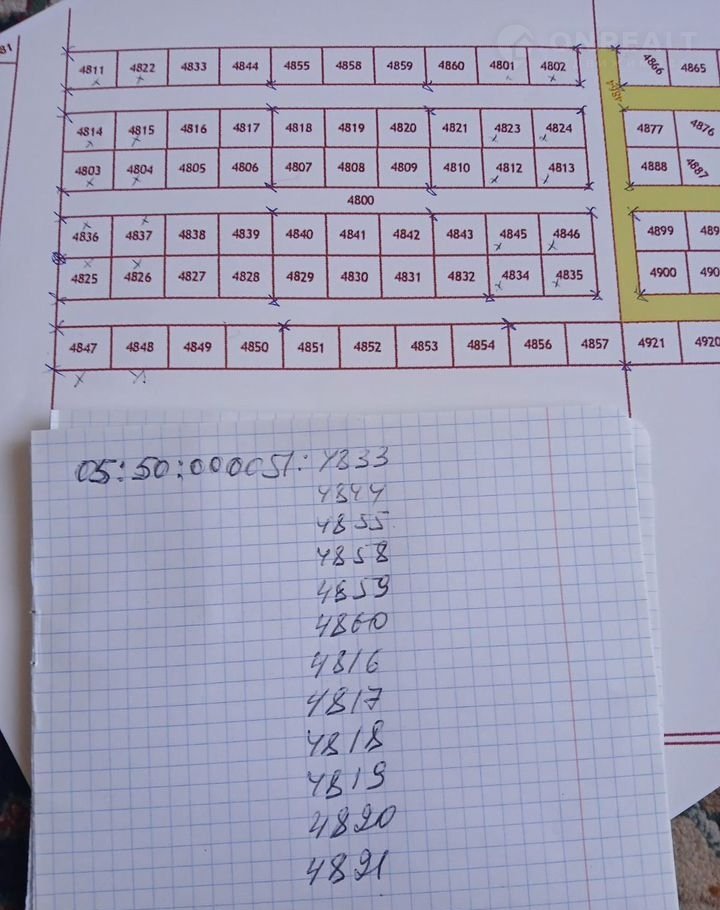 ONREALT
81
4811 4822 4833 4844 4855 4858 4859 4860 4801 4802 4866 4865
4814 4815 4816 4817 4818 4819 4820 4821 4823 4824 4877 4876
4803 4804 4805 4806 4807 4808 4809 4810 4812 4813 4888 4887
4800
4836 4837 4838 4839 4840 4841 4842 4843 4845 4846 4899 489
4825 4826 4827 4828 4829 4830 4831 4832 4834 4835 4900 490
4847 4848 4849 4850 4851 4852 4853 4854 4856 4857 4921 4920
05:50:000051:4833
4844
4855
4858
4859
4860
4816
4817
4818
4819
4820
4821